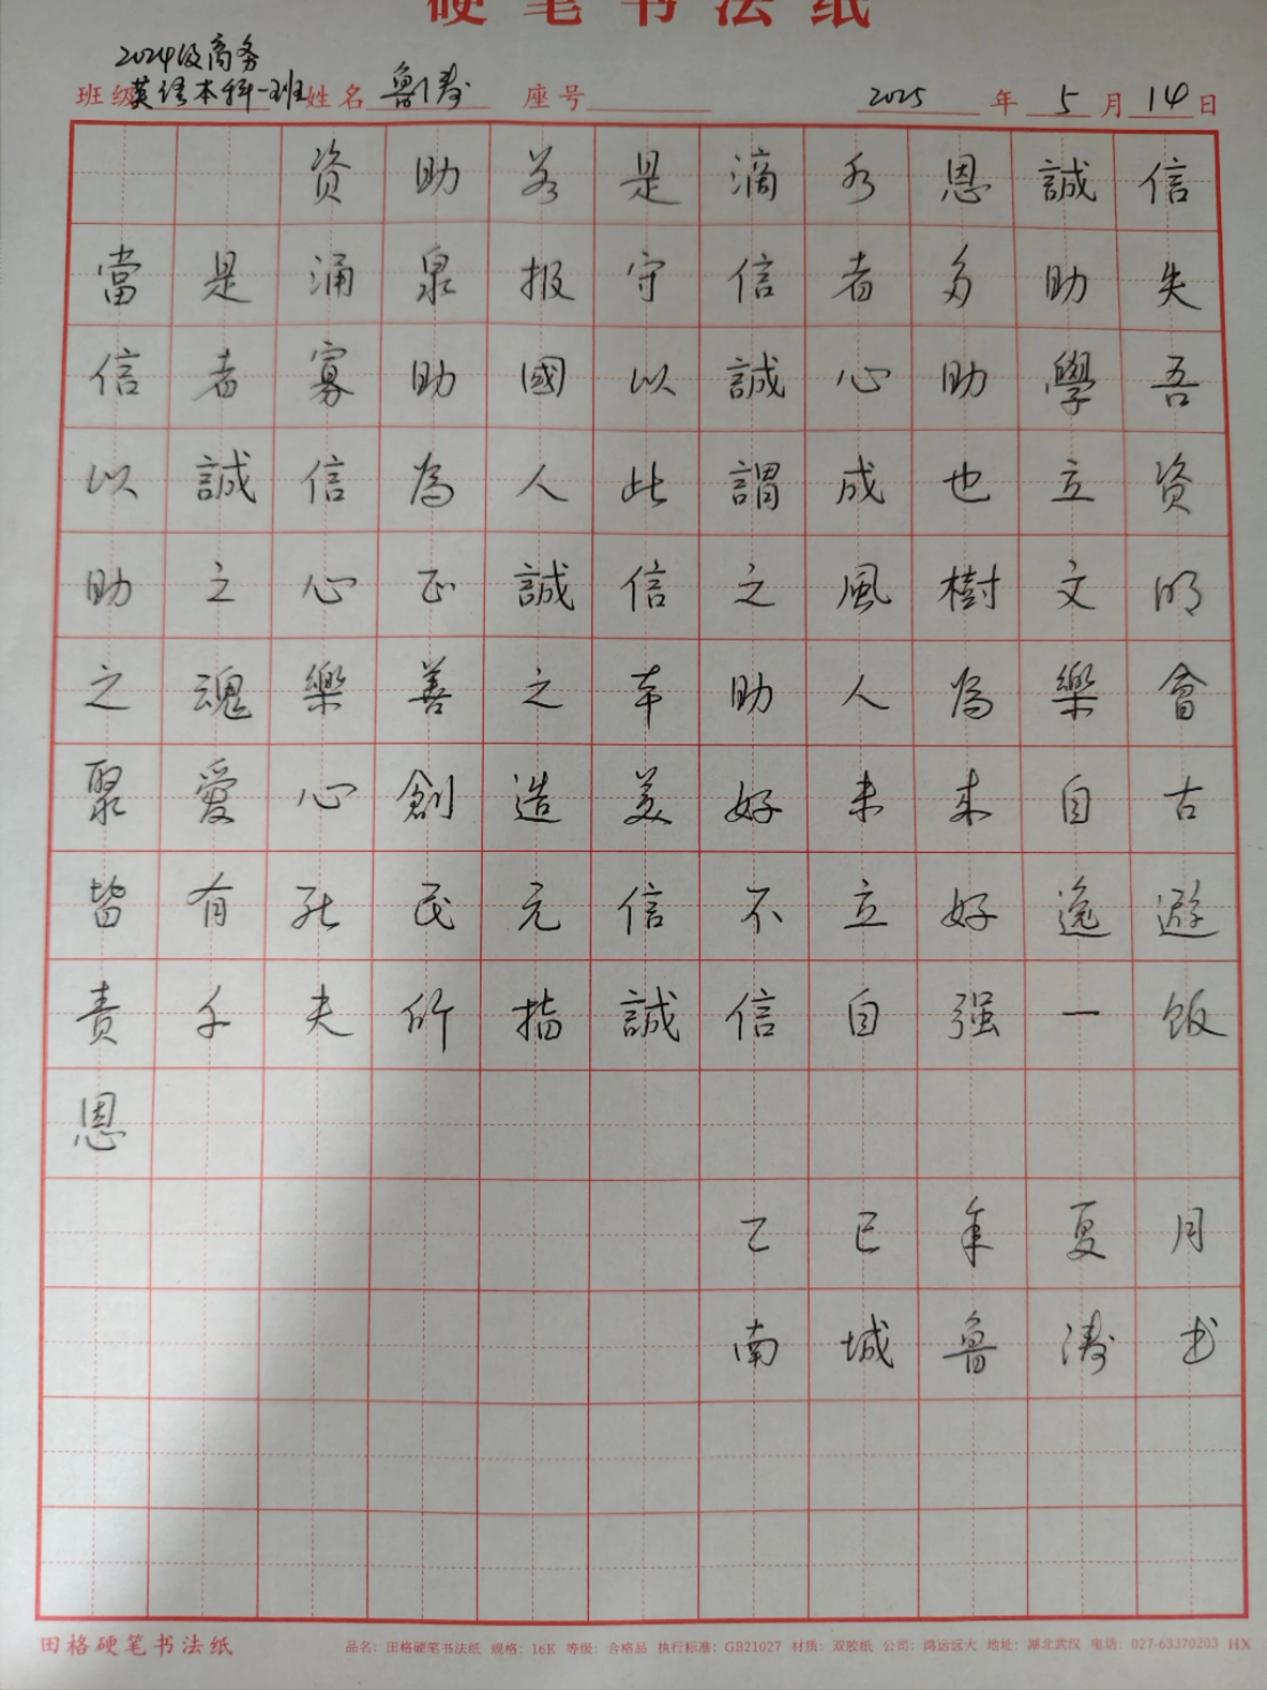 硬笔书法纸
2024级商务
班级英语本科一班 姓名鲁涛 座号 2025年5月14日
资助若是滴水恩誠信
當是涌泉报守信者多助失
信者寡助國以誠心助學吾
以誠信為人此謂成也立资
助之心正誠信之風樹文明
之魂樂善之本助人為樂會
聚愛心創造美好未来自古
皆有死民无信不立好逸避
责千夫所指誠信自强一饭
恩
乙巳年夏月
南城鲁涛书
田格硬笔书法纸 品名：田格硬笔书法纸 规格：16K 等级：合格品 执行标准：GB21027 材质：双胶纸 公司：鸿运远大 地址：湖北武汉 电话：027-63370203 HX